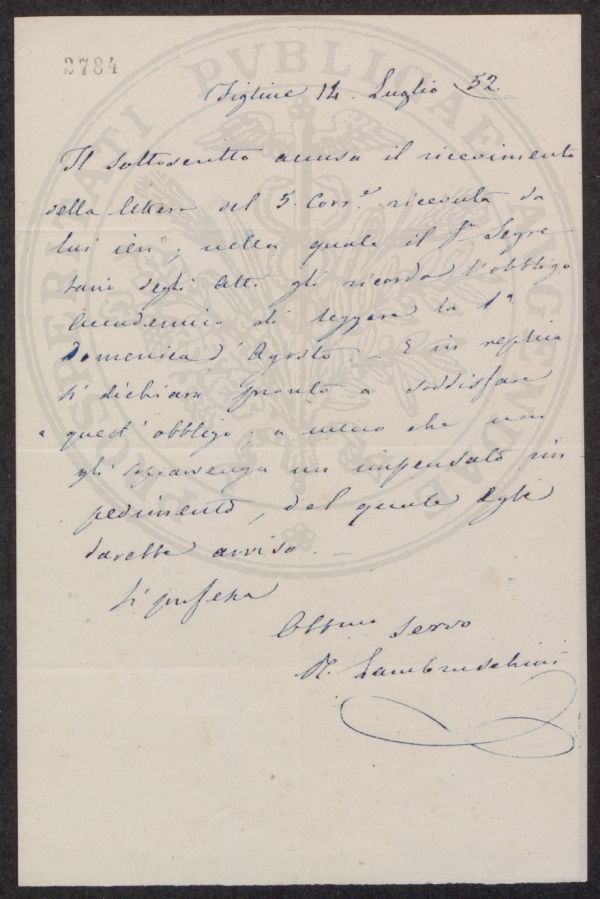 2784
PROSPERITATI PVBLICAE AVGENDAE
Figline 14. Luglio 52
Il sottoscritto accusa il ricevimento
della lettera del 5. Corr.e ricevuta da
lui ieri; nella quale il Sr. Segre
tario degli Atti gli ricorda l'obbligo
Accademico di leggere la 1a
Domenica d'Agosto. _ E in replica
si dichiara pronto a soddisfare
quest'obbligo, a meno che non
gli sopravvenga un impensato im
pedimento, del quale Egli
darebbe avviso. _
Si professa
Obbmo servo
R. Lambruschini